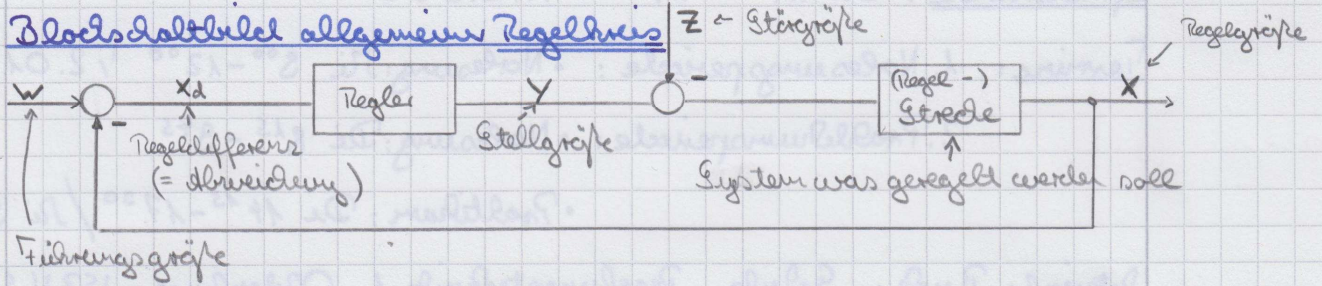 Blockschaltbild allgemeiner Regelkreis
Z ← Störgröße
Regelgröße
W
-
Xd
Regler
Y
-
(Regel-)
Strecke
X
Regeldifferenz
(= Abweichung)
Stellgröße
System was geregelt werden soll
-
Führungsgröße